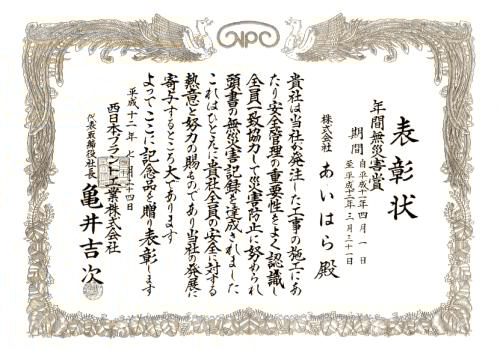 NPC
表彰状
年間無災害賞
期間 自平成十一年四月一日
至平成十二年三月三十一日
株式会社 あいはら殿
貴社は当社が発注した工事の施工にあ
たり安全管理の重要性をよく認識し
全員一致協力して災害防止に努められ
頭書の無災害記録を達成されました
これはひとえに貴社全員の安全に対する
熱意と努力の賜ものであり当社の発展に
寄与するところ大であります
よってここに記念品を贈り表彰します
平成十二年七月二十四日
西日本プラント工業株式会社
代表取締役社長 亀井吉次